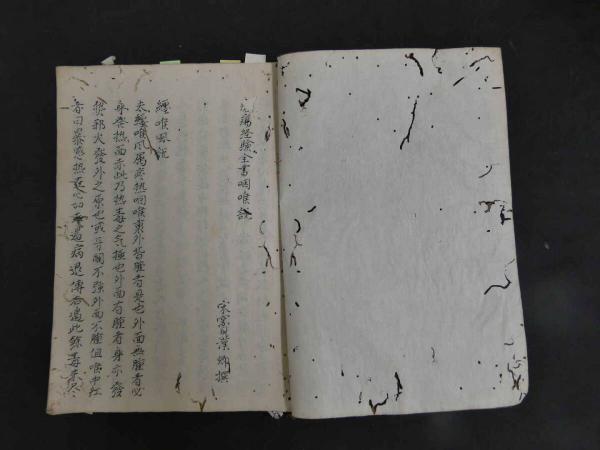 瘍經驗全書咽喉說
宋竇漢卿撰
纏喉風說
夫纏喉風屬痰熱咽喉裏外皆腫者是也外面無腫者必
身發熱面赤此乃熱毒之氣極也外面有腫者身亦發
熱邪火發外之原也或牙關不強外面不腫但喉中紅
者因暴感熱毒心加病退傳者過此餘毒未尽